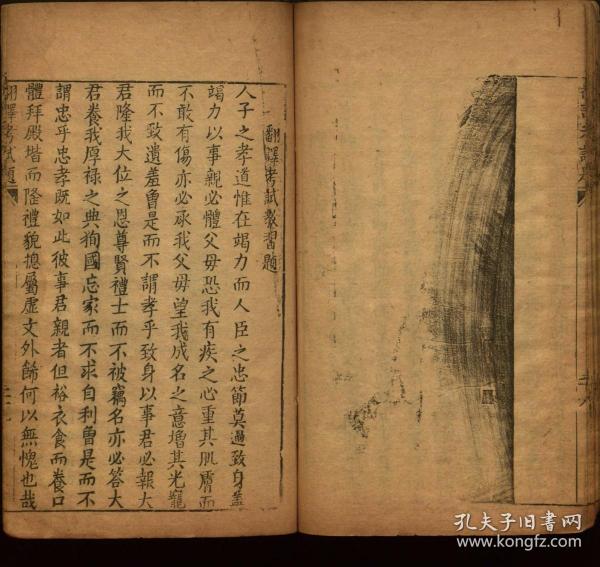 翻譯考試教習題
人子之孝道惟在竭力而人臣之忠節莫過致身蓋
竭力以事親必體父母恐我有疾之心重其肌膚而
不敢有傷亦必承我父母望我成名之意增其光寵
而不致遺羞魯是而不謂孝乎致身以事君必報大
君隆我大位之恩尊賢禮士而不被竊名亦必答大
君養我厚祿之典狥國忘家而不求自利魯是而不
謂忠乎忠孝既如此彼事君親者但裕衣食而養口
體拜殿堦而隆禮貌摠屬虛文外餙何以無愧也哉
翻譯考試題
孔夫子旧書网
www.kongfz.com